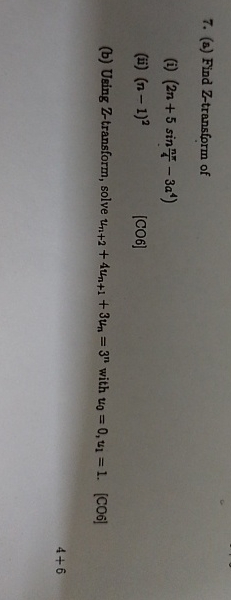 7. (a) Find Z-transform of
(i) (2n + 5 sin nπ/4 − 3a⁴)
(ii) (n − 1)² [CO6]
(b) Using Z-transform, solve uₙ₊₂ + 4uₙ₊₁ + 3uₙ = 3ⁿ with u₀ = 0, u₁ = 1. [CO6]
4 + 6